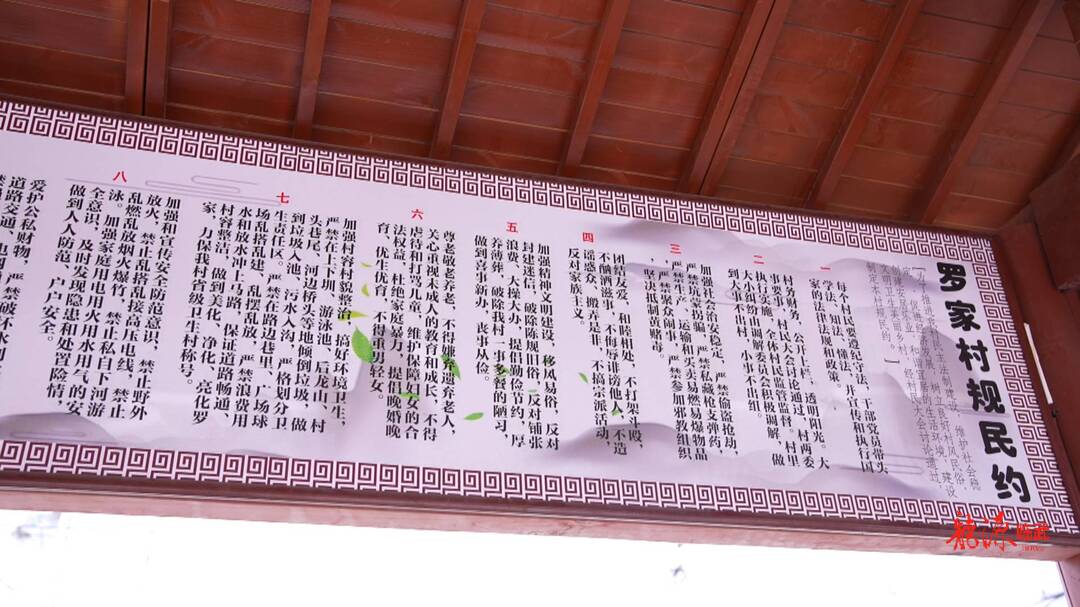 罗家村规民约
一
每个村民要遵纪守法，干部党员带头
学法、知法、懂法，并宣传和执行国
家的法律法规和政策。
二
村务财务，公开上栏，透明阳光，大
事要事，村民大会讨论通过，村两委
执行实施，全体村民监管监督，村里
大小纠纷由调解委员会积极调解，做
到大事不出村，小事不出组。
三
加强扶社会治安稳定，严禁偷盗抢劫，
严禁坑蒙拐骗，严禁私藏枪支弹药，
严禁生产、运输和买卖易燃易爆物品
，严禁聚众闹事，严禁参加邪教组织
，坚决抵制黄赌毒。
四
团结友爱，和睦相处，不打架斗殴，
不酗酒滋事，不侮辱诽谤他人，不造
谣惑众、搬弄是非，不搞宗派活动，
反对家族主义。
五
加强精神文明建设，移风易俗，反对
封建迷信，破除陈规旧俗，反对铺张
浪费、大操大办，提倡勤俭节约，厚
养薄葬。破除我村一事多餐的陋习，
做到喜事新办，丧事从俭。
六
尊老敬老养老，不得嫌弃老人，
关心重视未成人的教育和成长，不得
虐待和打骂儿童，维护保障妇女的合
法权益，杜绝家庭暴力，提倡晚婚晚
育、优生优育，不得重男轻女。
七
加强村容村貌整治，搞好环境卫生，
严禁在上下圳、游泳池、后龙山、村
头巷尾、河边桥头等地倾倒垃圾，做
到垃圾入池，污水入沟，严格划分卫
生责任区。严禁在路边巷里、广场球
场乱搭乱建、乱摆乱放，严禁浪费用
水和放水冲上马路，保证道路畅通，
村容整洁，做到美化、净化、亮化罗
家，力保我村省级卫生村称号。
八
加强和宣传安全防范意识，禁止野外
放火，禁止乱搭乱接高压电线，禁止
乱燃乱放烟火爆竹，禁止私自下河游
泳。加强家庭用电用火用水用气的安
全意识，及时发现隐患和处置险情，
做到人人防范，户户安全。
爱护公私财物，严禁破坏水利
龙源